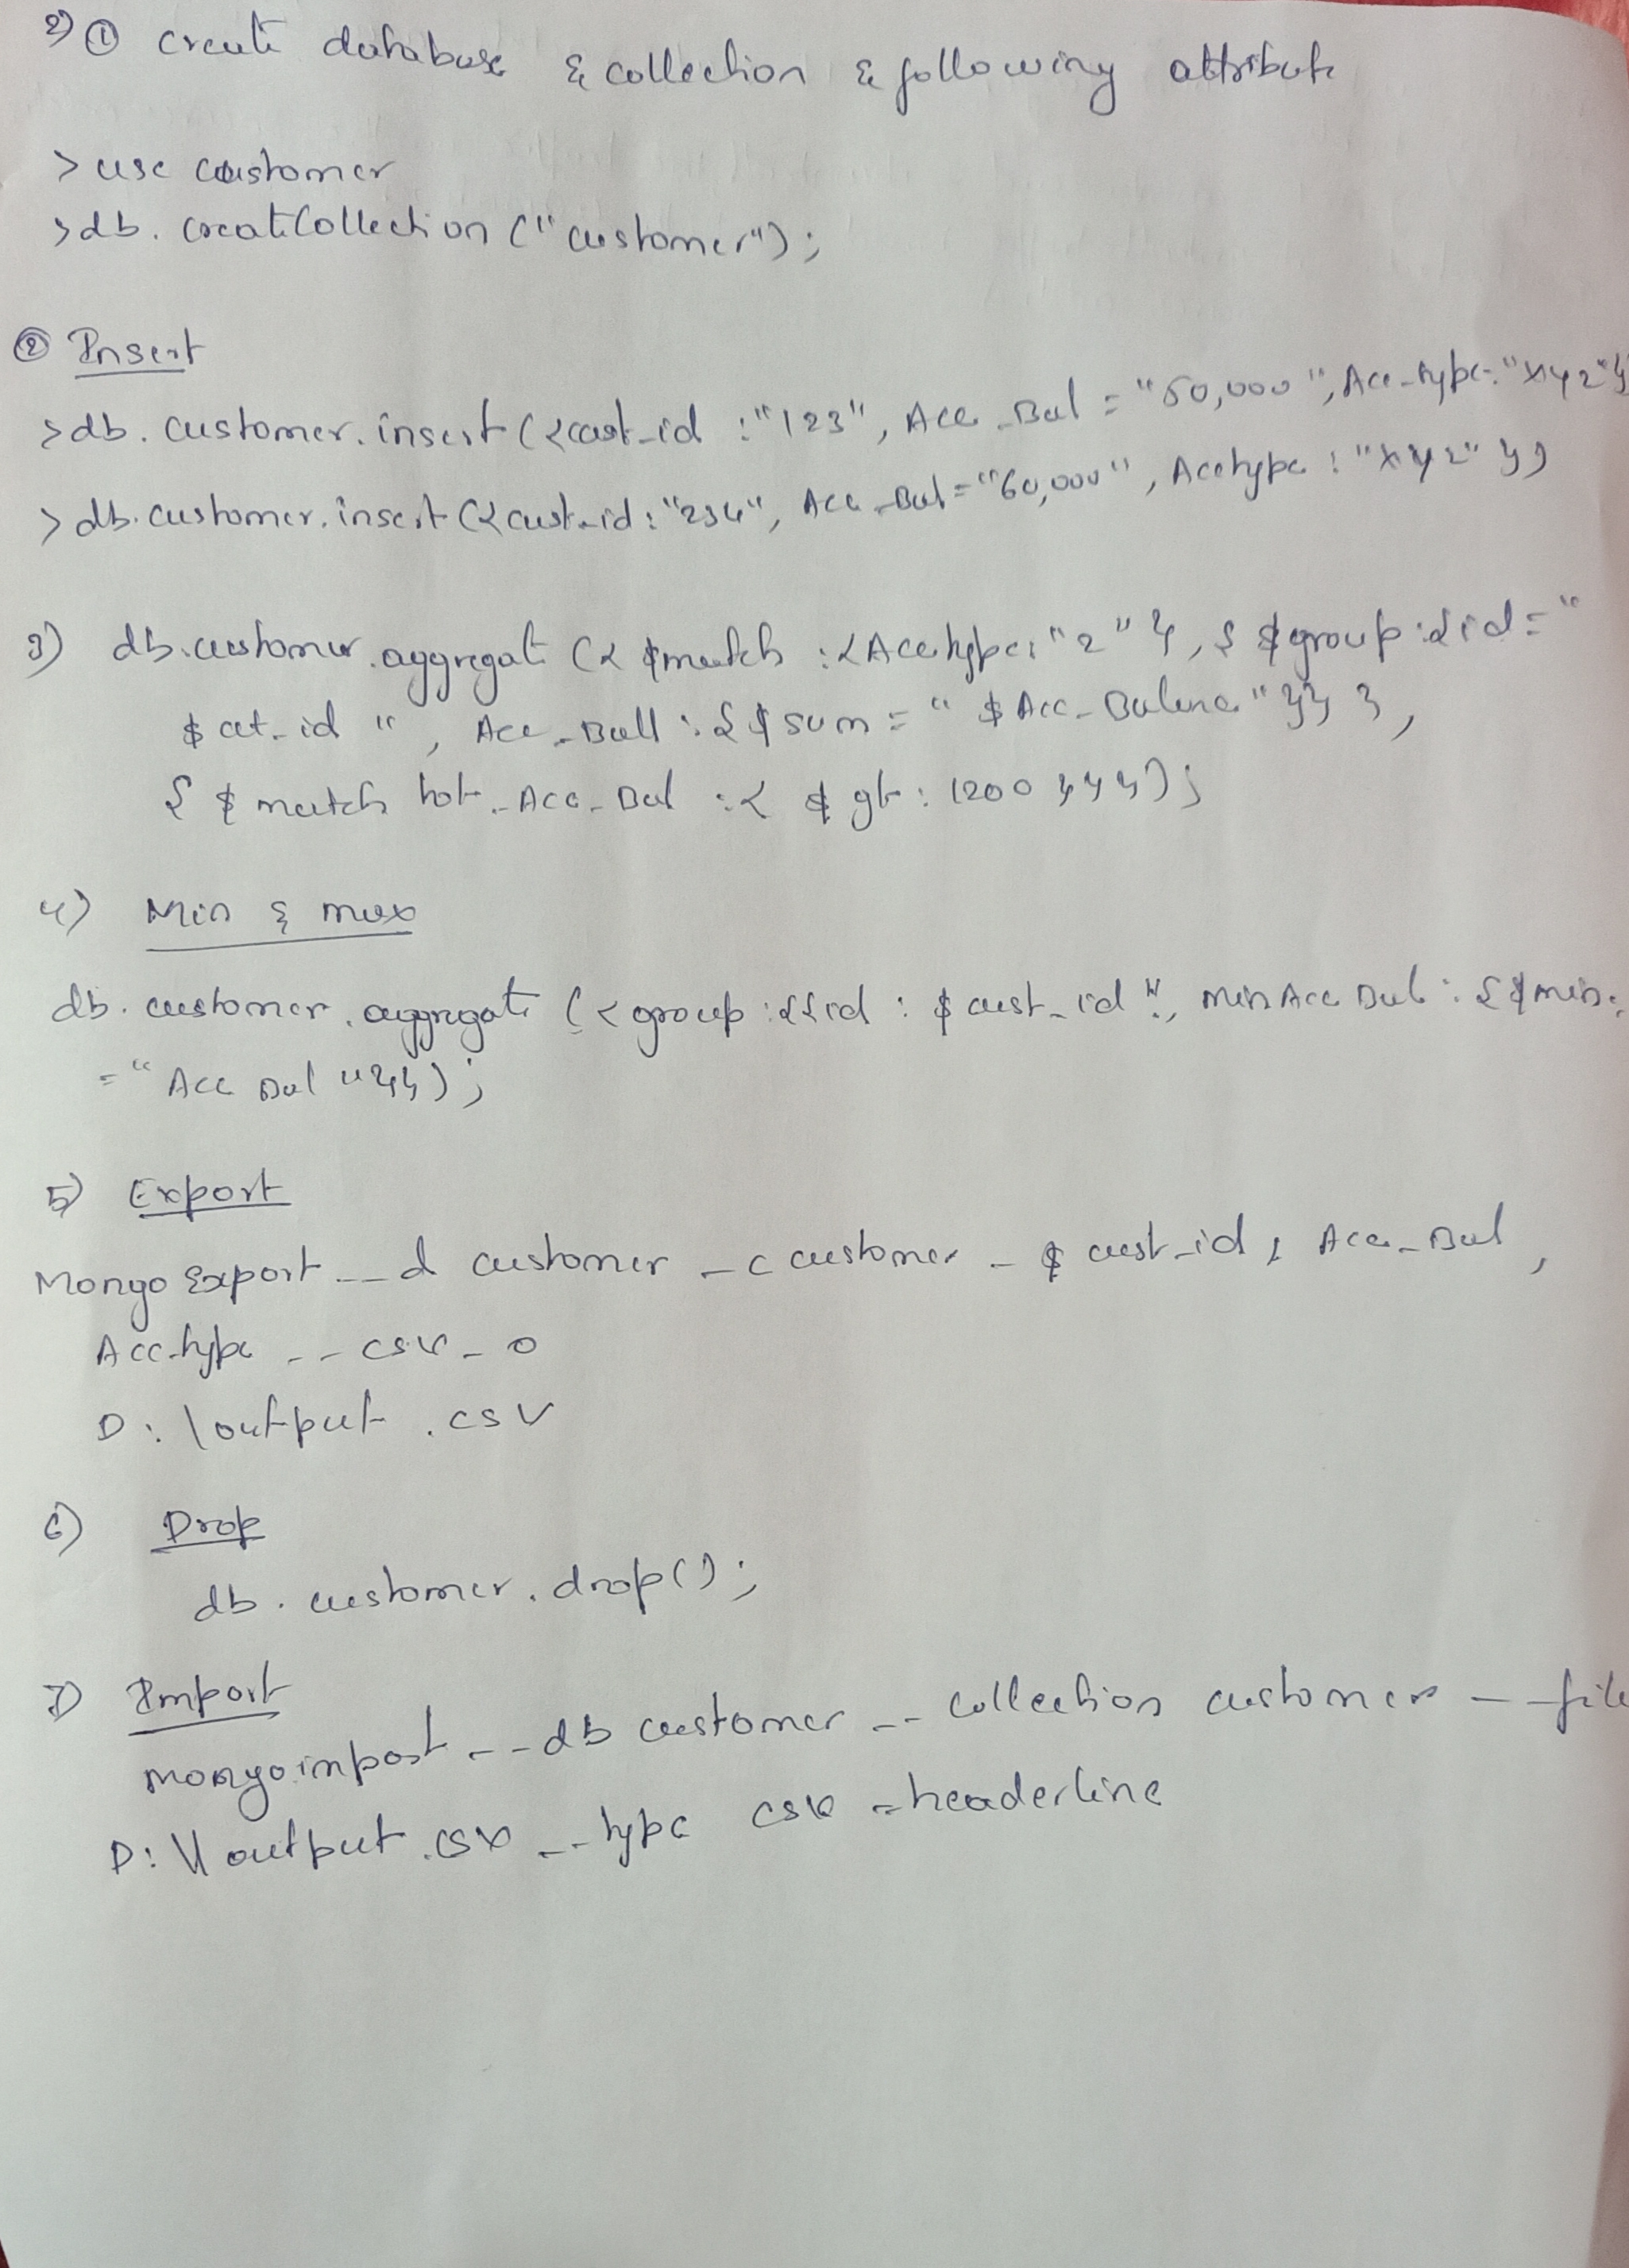 2) ① Create database & collection & following attribute
> use customer
> db. createCollection ("customer");
② Insert
> db. customer. insert ({cust_id : "123", Acc_Bal = "50,000", Acc_type: "xyz"}
> db. customer. insert ({cust_id : "234", Acc_Bal = "60,000", Acctype : "xyz" })
3) db. customer. aggregate ({ $match : {Acctype: "z" }, { $group : {id = "
$ct_id ", Acc_Ball : { $sum = " $Acc_Balance" }} },
{ $match tot_Acc_Bal : { $gt : 1200 }}});
4) Min & max
db. customer. aggregate ({ group : {{id : $cust_id ", min Acc Bal : { $min:
= "Acc Bal "}});
5) Export
Mongo Export -- d customer -c customer - $ cust_id, Acc_Bal,
Acc-type -- csv - o
D: \output .csv
6) Drop
db. customer. drop();
7) Import
mongoimport --db customer -- collection customer --file
D: \\output .csv -- type csv -headerline